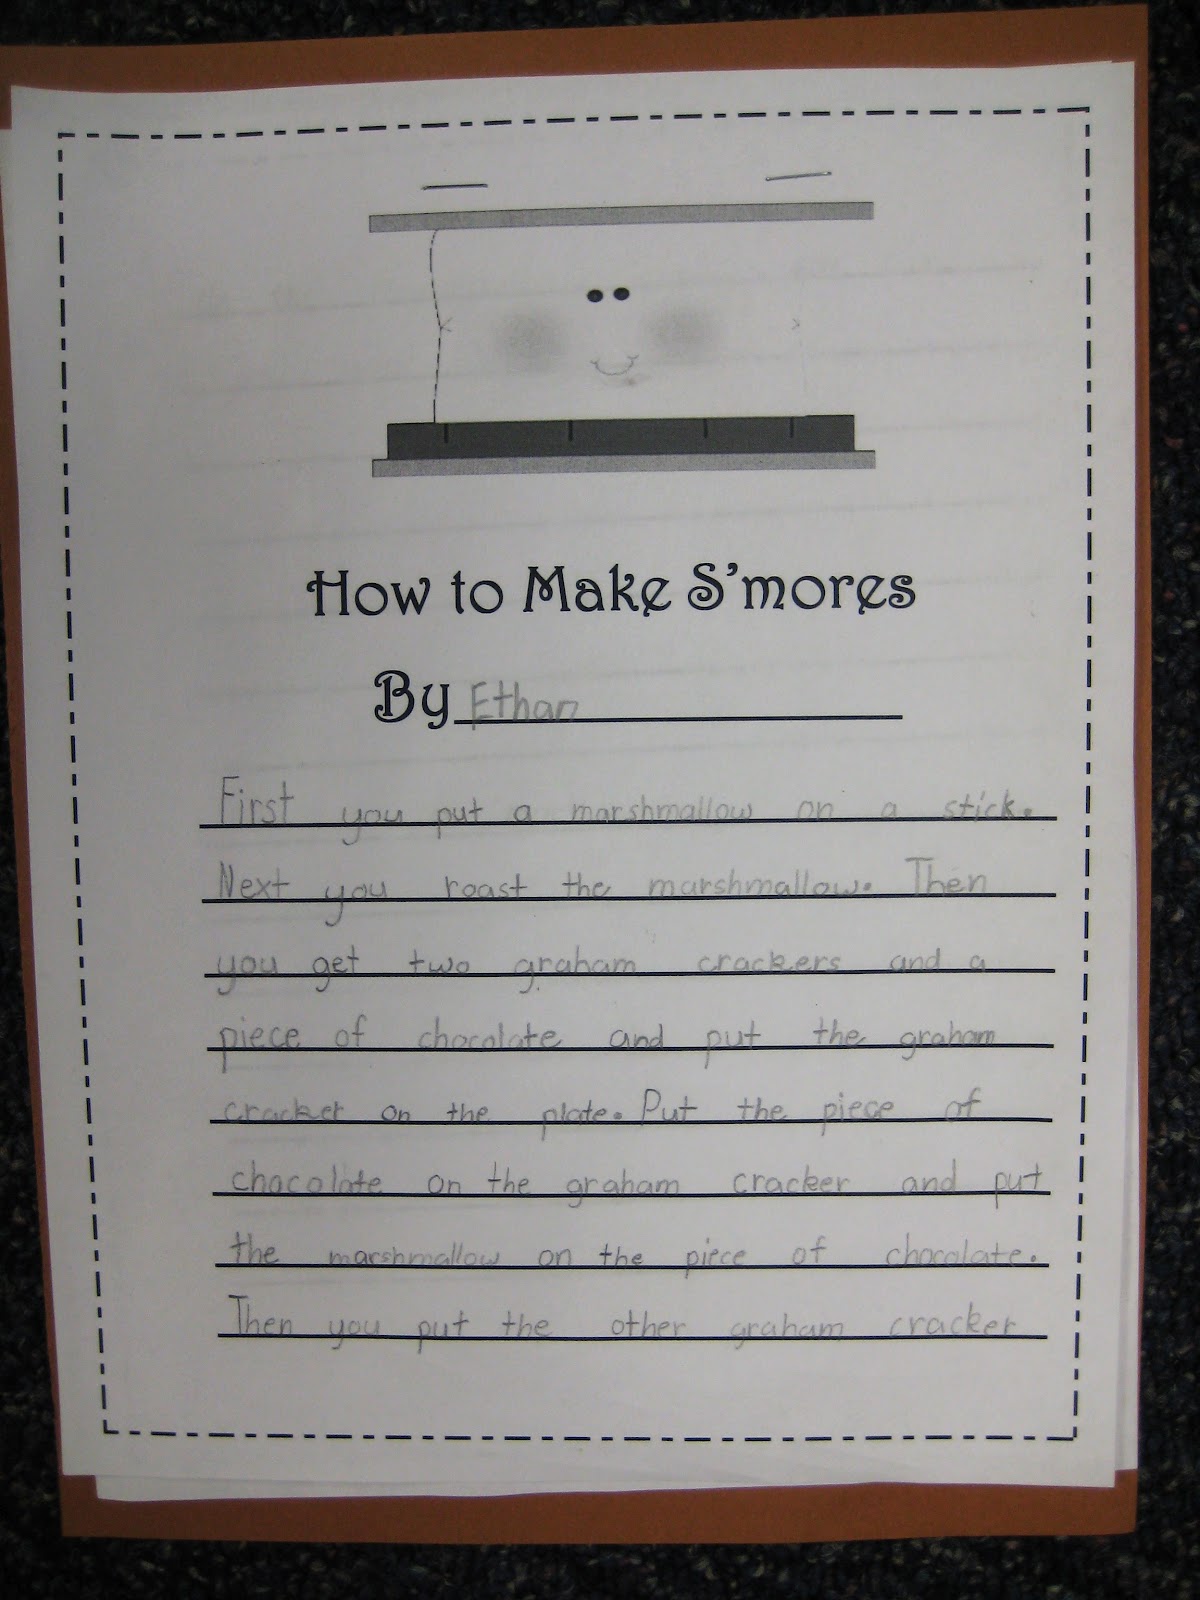 How to Make S'mores
By Ethan
First you put a marshmallow on a stick.
Next you roast the marshmallow. Then
you get two graham crackers and a
piece of chocolate and put the graham
cracker on the plate. Put the piece of
chocolate on the graham cracker and put
the marshmallow on the piece of chocolate.
Then you put the other graham cracker